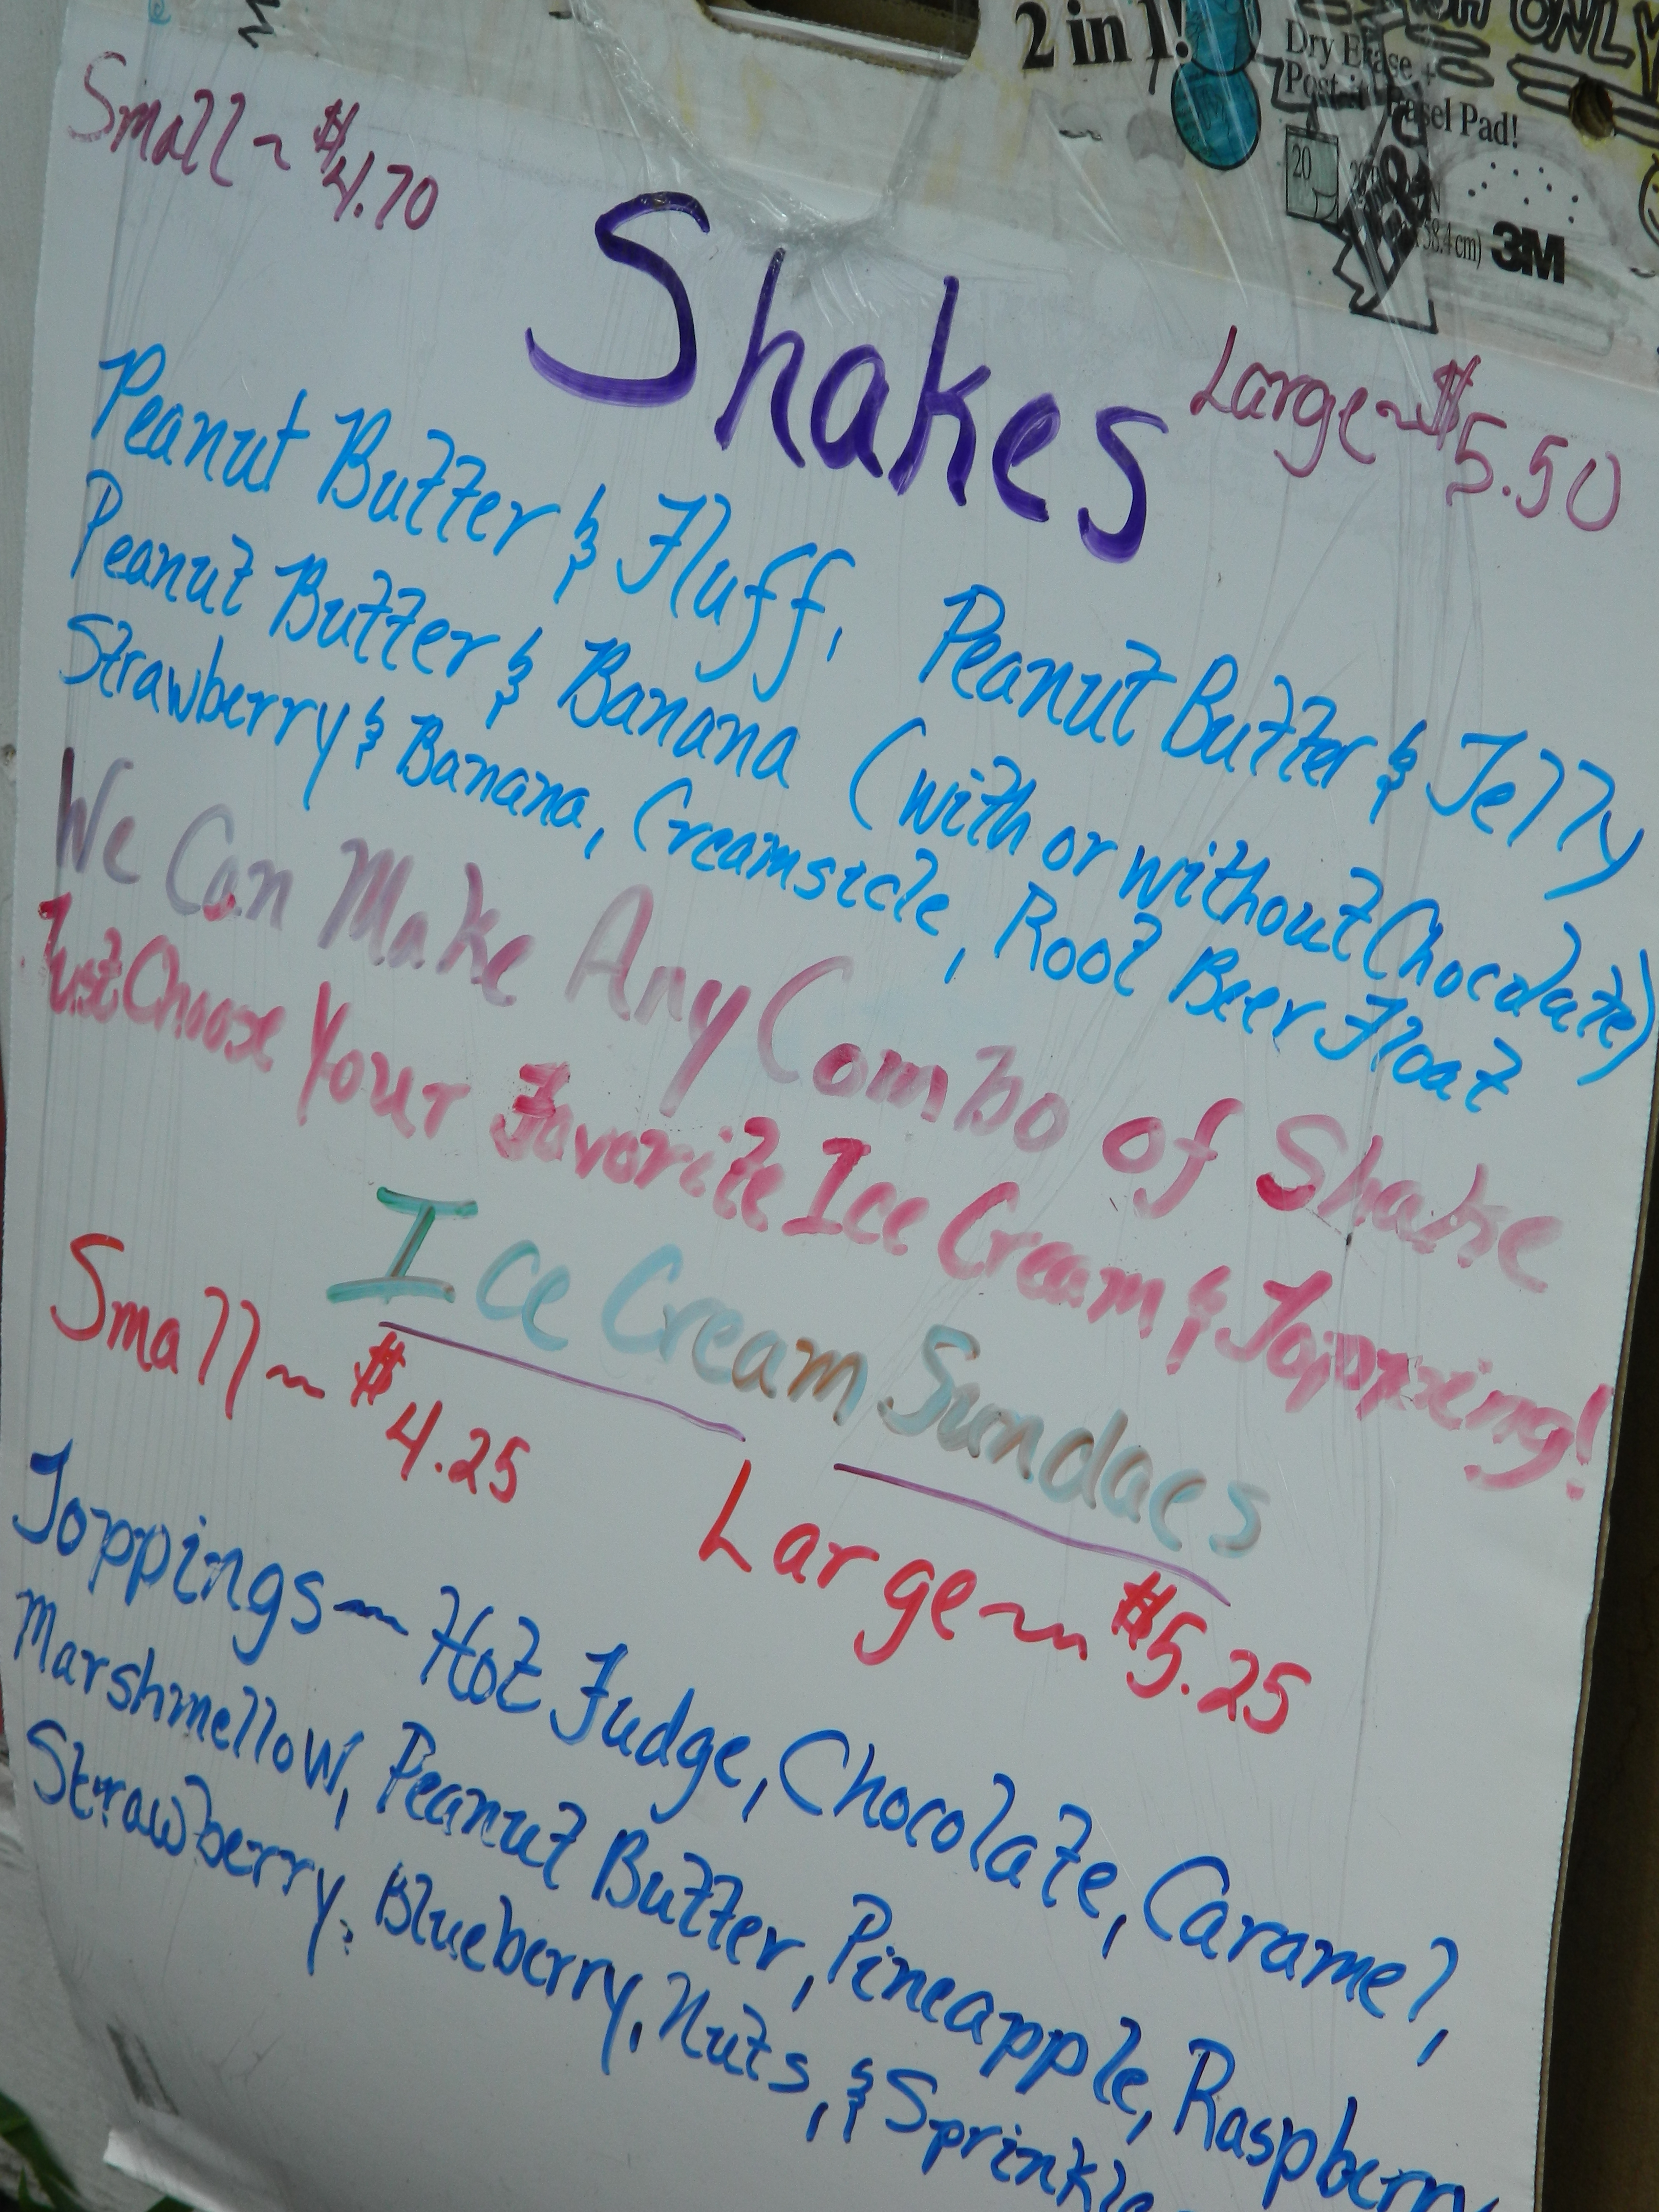 2 in 1!
Dry Erase +
Post-it Easel Pad!
20
58.4 cm)
3M
ONLY
Small ~ $4.70
Shakes
Large ~ $5.50
Peanut Butter & Fluff, Peanut Butter & Jelly
Peanut Butter & Banana (with or without Chocolate)
Strawberry & Banana, Creamsicle, Root Beer Float
We Can Make Any Combo of Shake
Just Choose Your Favorite Ice Cream & Topping!
Ice Cream Sundaes
Small ~ $4.25
Large ~ $5.25
Toppings ~ Hot Fudge, Chocolate, Caramel,
Marshmellow, Peanut Butter, Pineapple, Raspberry
Strawberry, Blueberry, Nuts, & Sprinkle